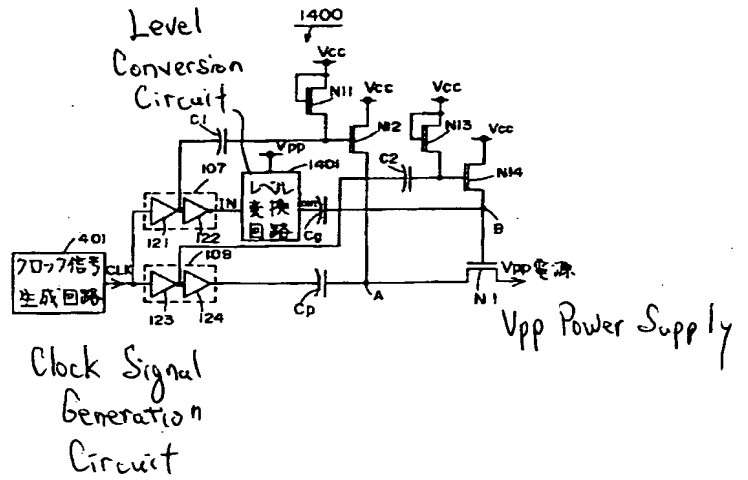 Level
Conversion
Circuit
1400
Vcc
N11
Vcc
N12
Vcc
N13
Vcc
N14
C1
C2
Vpp
1401
107
IN
レベル
変換
回路
OUT
Cg
B
121
122
401
クロック信号
生成回路
CLK
109
123
124
Cp
A
N1
Vpp電源
Vpp Power Supply
Clock Signal
Generation
Circuit